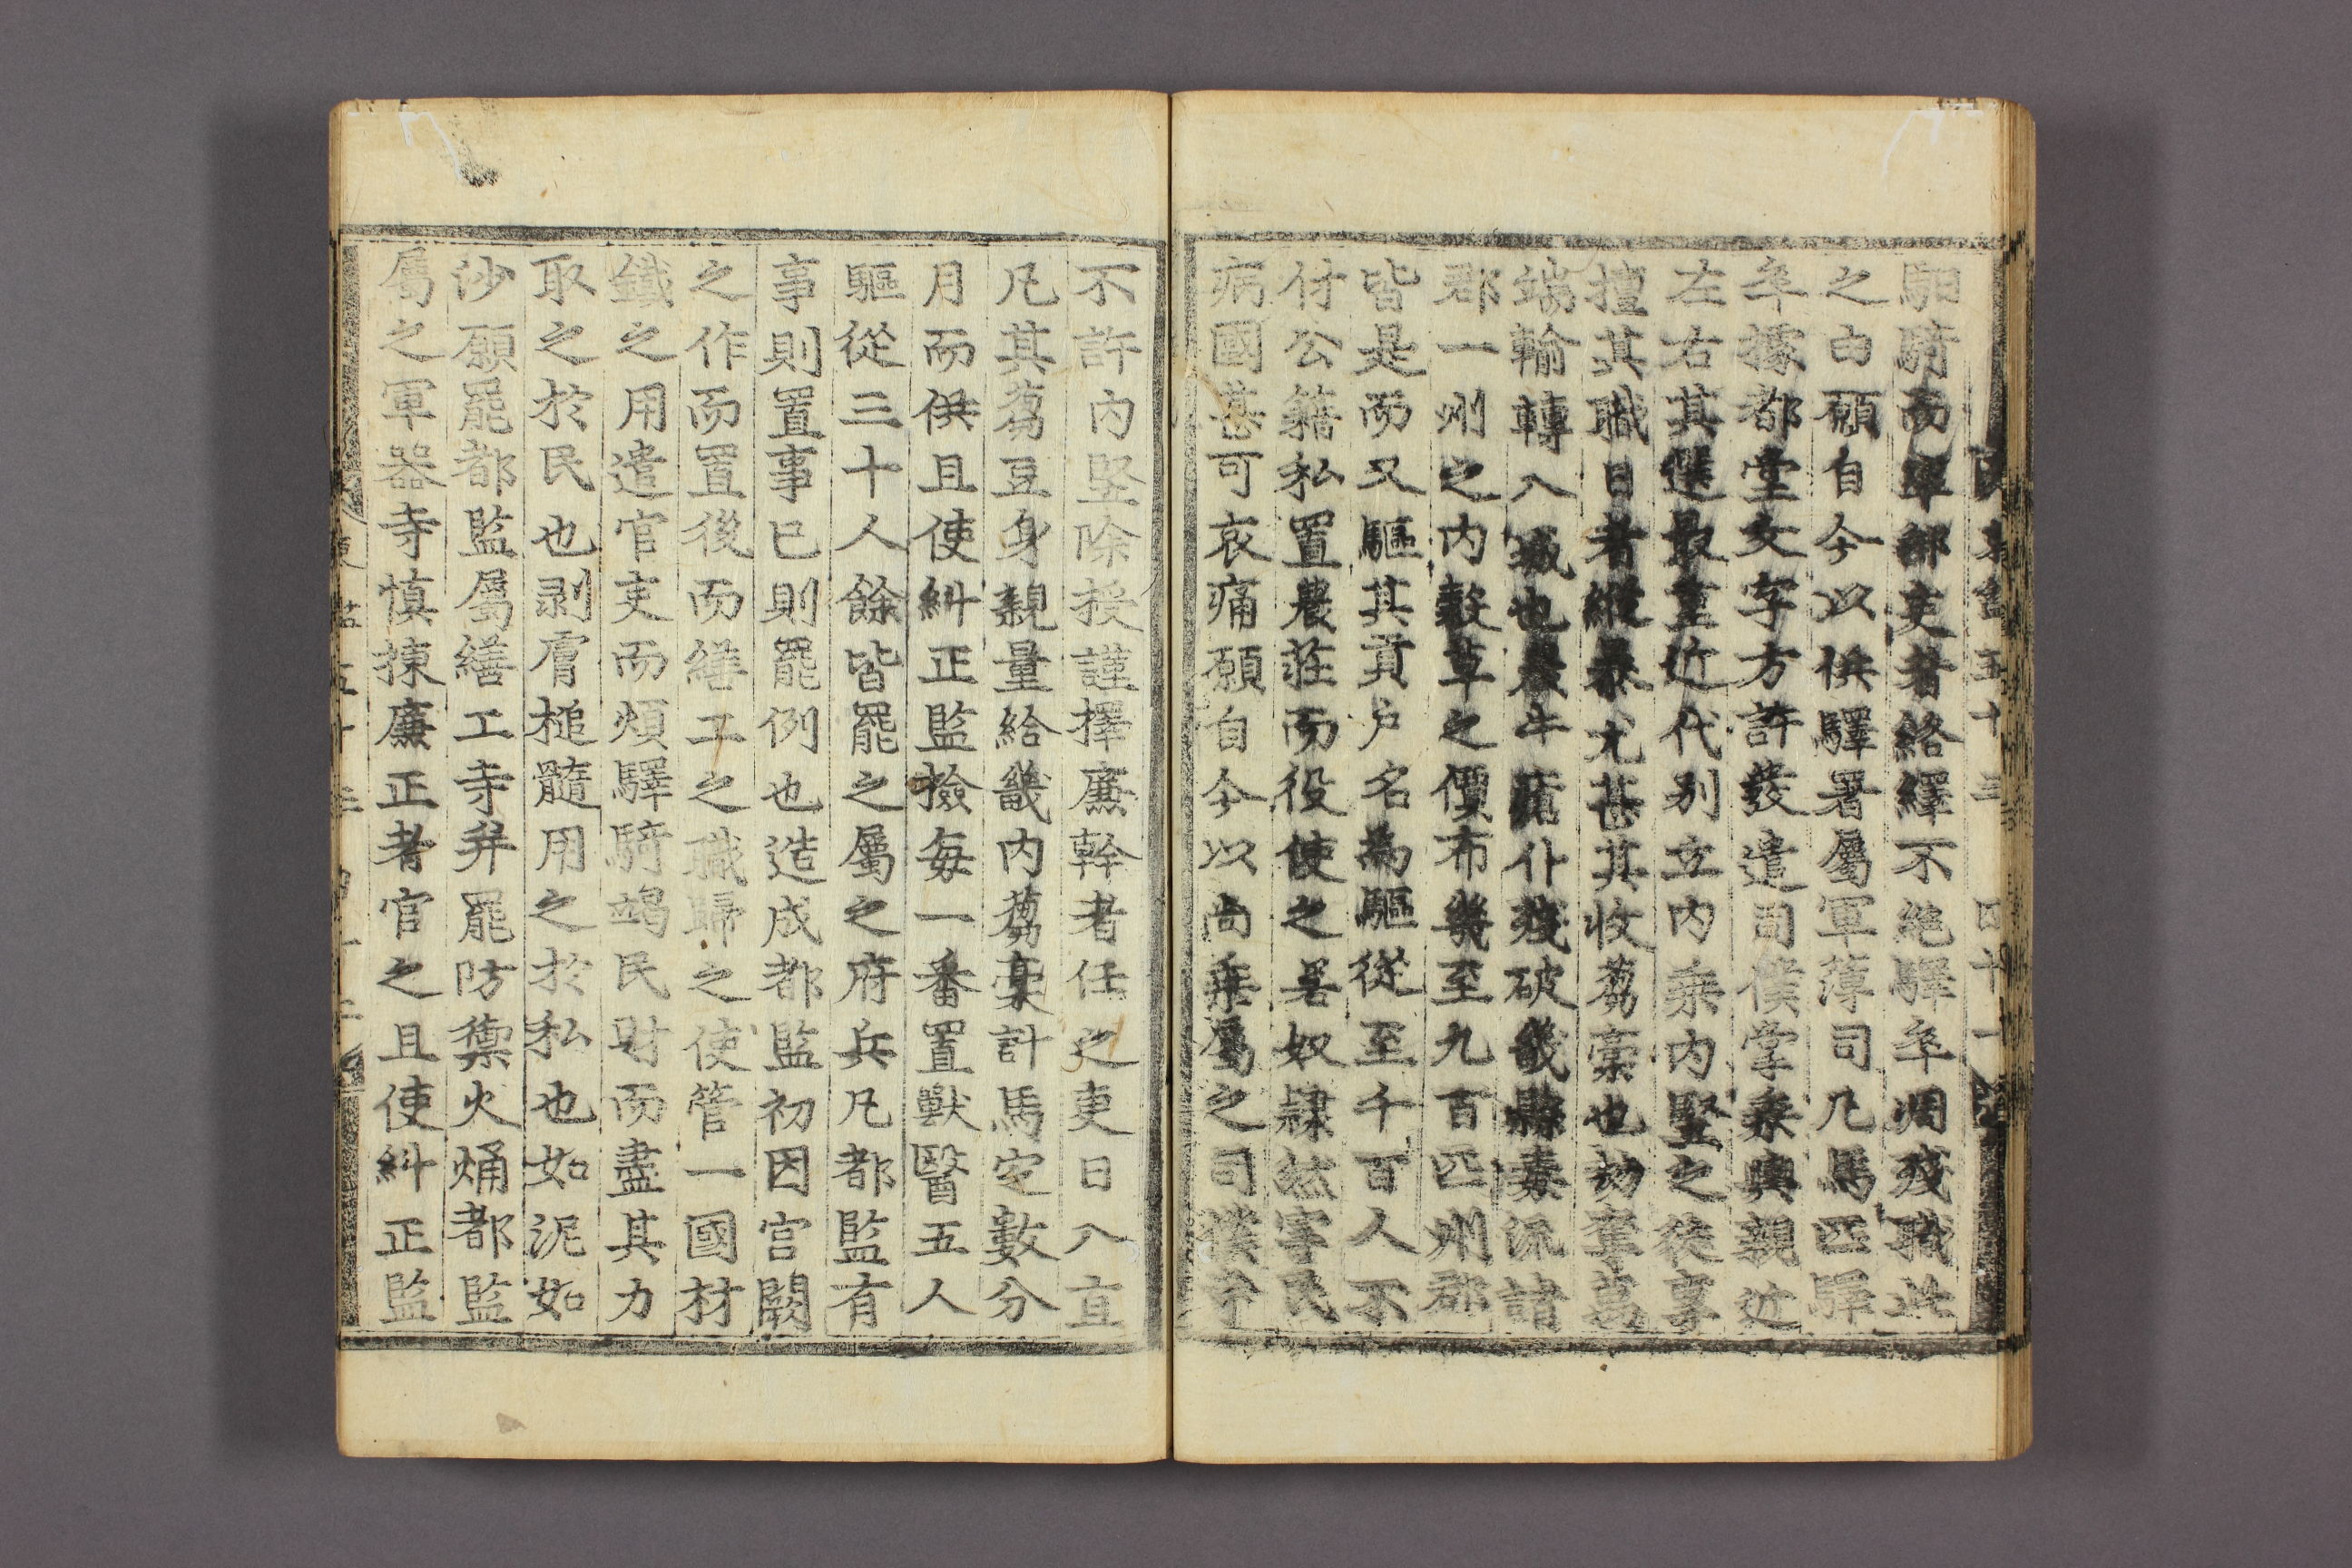 東文選五十三 四十一
馹騎而軍部吏者絡繹不絶驛卒凋殘職此
之由願自今以供驛署屬軍簿司凡馬匹驛
卒據都堂文字方許發遣司僕掌乘輿親近
左右其選最重近代別立内乘内竪之徒專
擅其職日者縱暴尤甚其收蒭藁也劫奪萬
端輸轉入城也農牛僵仆殘破畿縣毒流諸
郡一州之内穀草之價布幾至九百匹州郡
皆是而又驅其貢户名為驅從至千百人不
付公籍私置農莊而役使之署奴隷然害民
病國甚可哀痛願自今以尚乘屬之司僕寺
不許内竪除授謹擇廉幹者任之吏日入直
凡其蒭豆身親量給畿内蒭藁計馬定數分
月而供且使糾正監撿每一番置獸醫五人
驅從三十人餘皆罷之屬之府兵凡都監有
事則置事已則罷例也造成都監初因宫闕
之作而置後而繕工之職歸之使管一國材
鐵之用遣官吏而煩驛騎竭民財而盡其力
取之於民也剥膚槌髓用之於私也如泥如
沙願罷都監屬繕工寺并罷防禦火㷁都監
屬之軍器寺慎揀廉正者官之且使糾正監